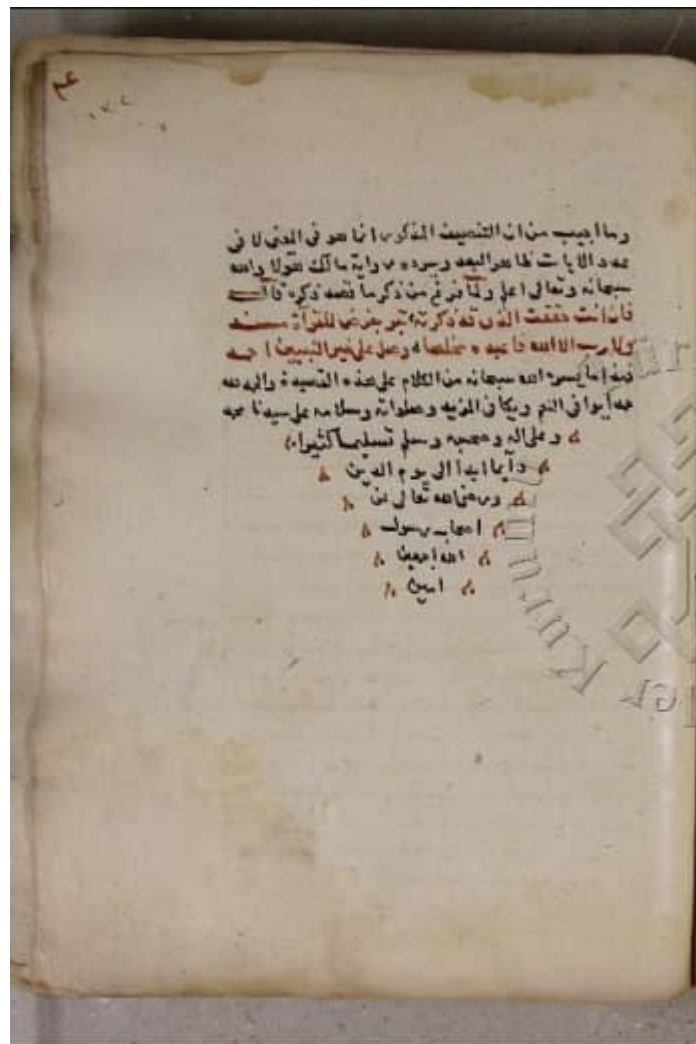 وما اجيب من ان التنصيف المذكور انما هو فى المعنى لا فى
عدد الايات ظاهر البعد ويرده رواية مالك هؤلا والله
سبحانه وتعالى اعلم ولما فرغ من ذكر ما قصد ذكره قال
فان انت حققت الذى قد ذكرته
ولا رب الا الله فاعبده مخلصا وصل على خير النبيين احمد
فهذا ما يسره الله سبحانه من الكلام على هذه القصيدة والحمد لله
حمدا يوافى النعم ويكافى المزيد وصلواته وسلامه على سيدنا محمد
وعلى اله وصحبه وسلم تسليما كثيرا
دآيما ابدا الى يوم الدين
ورضى الله تعالى عن
اصحاب رسول
الله اجمعين
امين